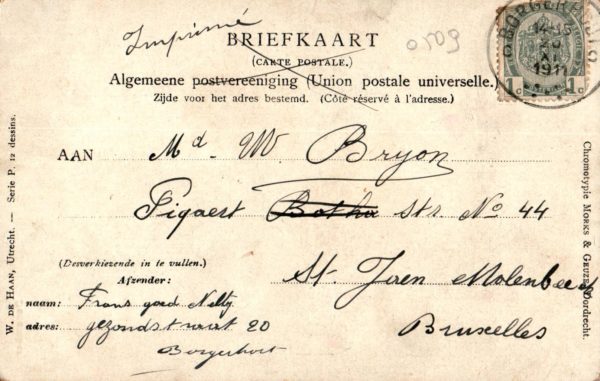 Imprimé
BRIEFKAART
0509
(CARTE POSTALE.)
Algemeene postvereeniging (Union postale universelle.)
Zijde voor het adres bestemd. (Côté réservé à l'adresse.)
1c 1c
1911
AAN Md. W. Bryon
Pigaert Botha Str. No 44
St. Jaen Molenbeek
Bruxelles
(Desverkiezende in te vullen.)
Afzender:
naam: Frans goed Nelly
adres: gezondstraat 20
Borgerhout
W. DE HAAN, Utrecht. — Serie P. 12 dessins.
Chromotypie MORKS & GEUZE, Dordrecht.